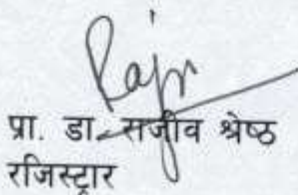 Rajiv
प्रा. डा. राजीव श्रेष्ठ
रजिस्ट्रार